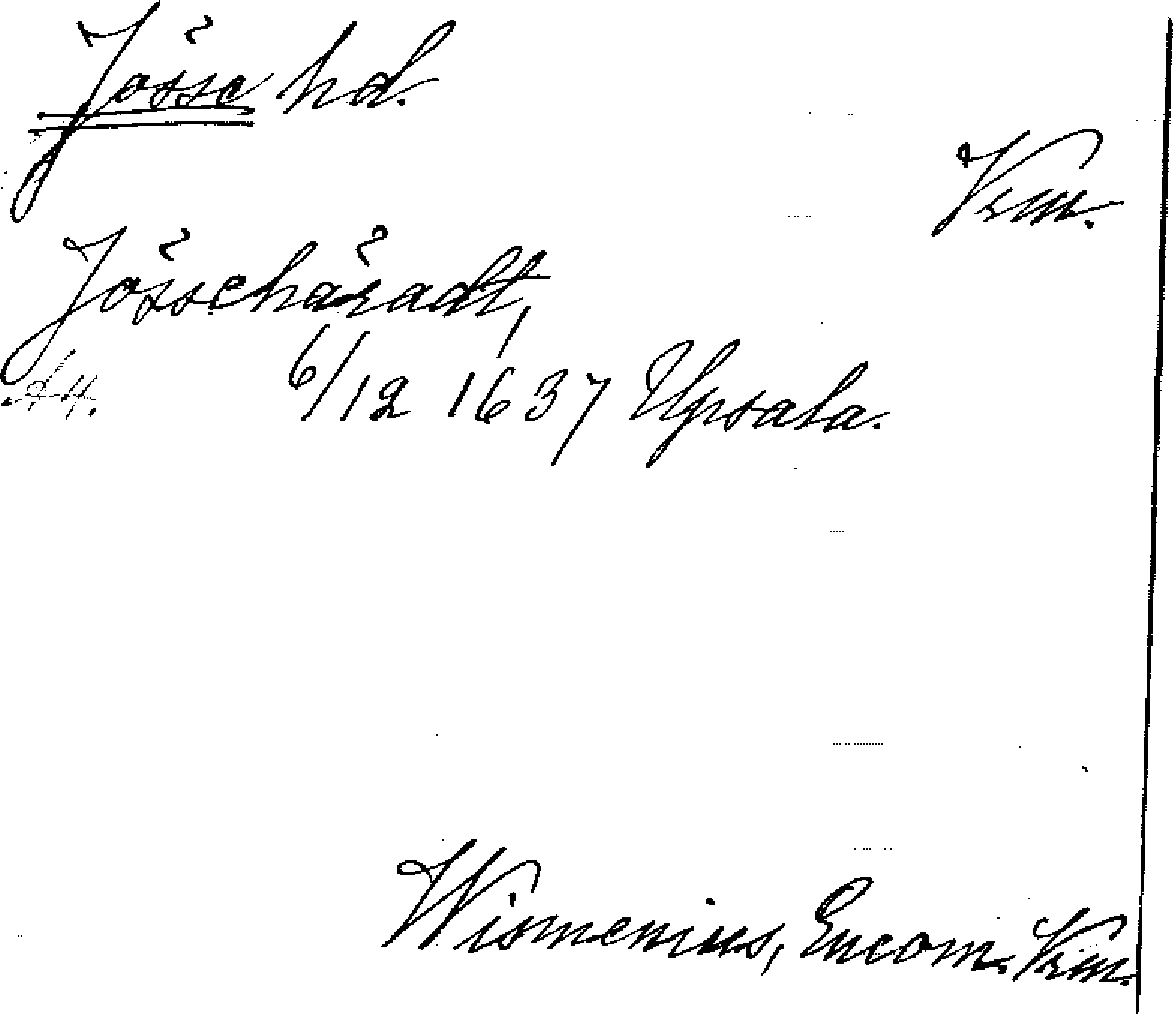 Jösse hd.
Vrm.
Jösseháradt,
6/12 1637 Upsala.
Wismenius, Encom. Vrm.